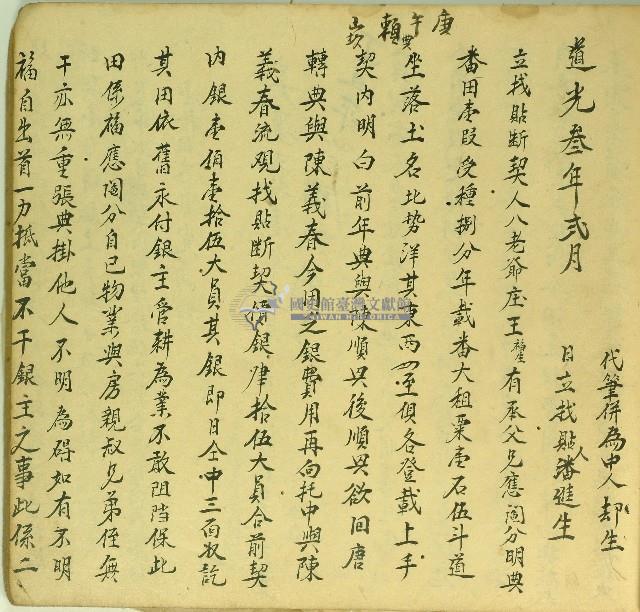 代筆併為中人却生
日立找貼人潘進生
道光叁年弍月
立找貼斷契人八老爺庄王 有承父兄應鬮分明典
番田壹段受種捌分年載番大租粟壹石伍斗道
坐落土名北势洋其東西四至俱各登載上手
契內明白前年典與陳順與後順與欲回唐
轉典與陳義春今因乏銀費用再向托中與陳
義春流覌找貼斷契價銀肆拾伍大員合前契
內銀壹佰壹拾伍大員其銀即日仝中三面收訖
其田依舊永付銀主管耕為業不敢阻挡保此
田係福應鬮分自己物業與房親叔兄弟侄無
干亦無重張典掛他人不明為碍如有不明
福自出首一力抵當不干銀主之事此係二
庚午 賴
國史館臺灣文獻館
TAIWAN HISTORICA